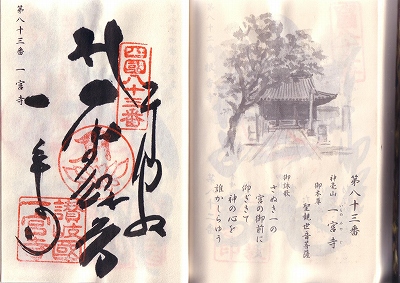 第八十三番 一宮寺
四國八十三番
奉納
一宮寺
讃岐國
一宮寺
第八十三番
神毫山 一宮寺
いちのみやじ
御本尊
聖観世音菩薩
御詠歌
さぬき一の
宮の御前に
仰ぎきて
神の心を
誰かしらゆう